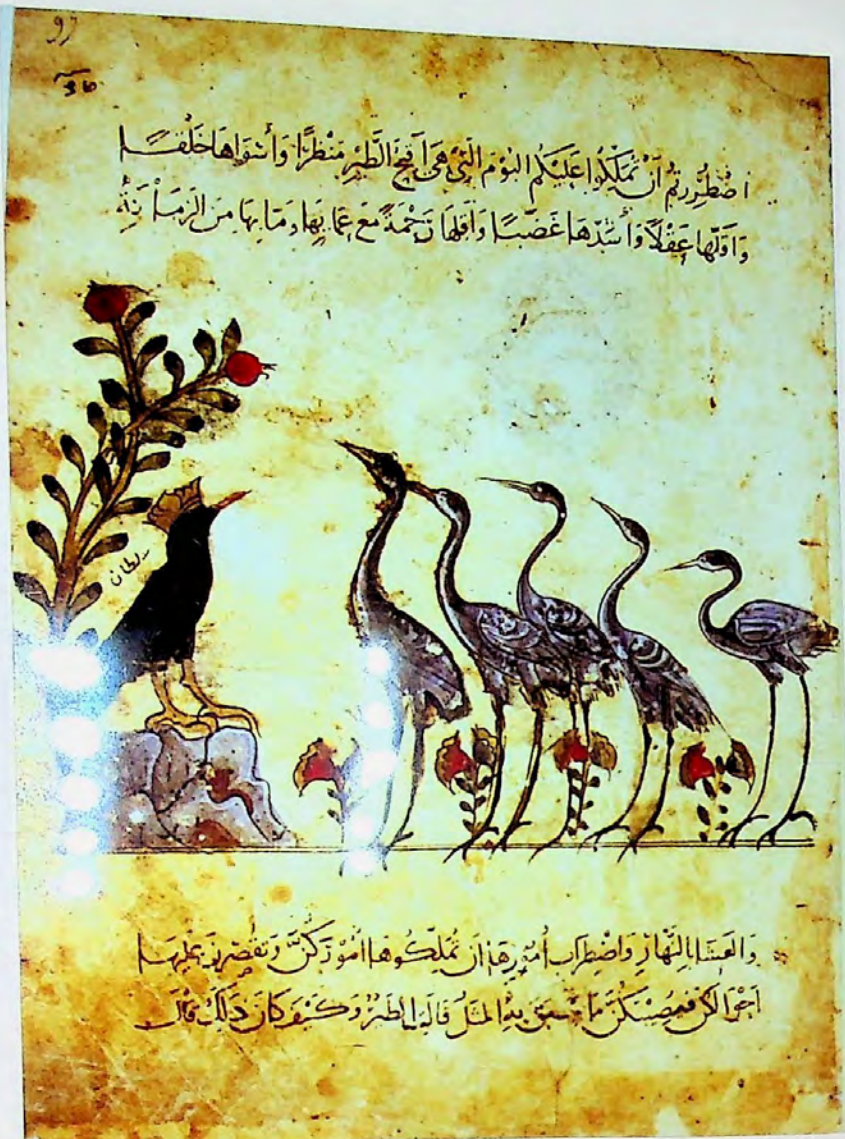 97
اضطررتم أن تملكوا عليكم البوم التي هي أقبح الطير منظرًا وأسواها خلقًا
وأقلها عقلًا وأشدها غضبًا وأقلها رحمةً مع عماها وما بها من الزمانة
والعشا بالنهار واضطراب أمورها أن تملكوها أموركن وتقصرن بحملها
فيصيبكن ما سبق به المثل قالت الطير وكيف كان ذلك قال